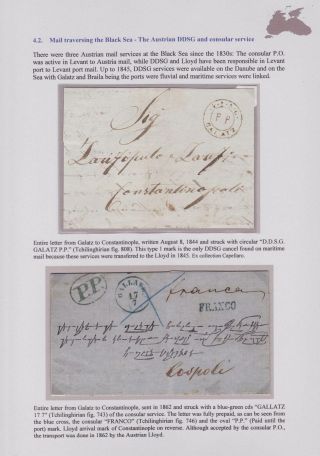 4.2. Mail traversing the Black Sea - The Austrian DDSG and consular service
There were three Austrian mail services at the Black Sea since the 1830s: The consular P.O.
was active in Levant to Austria mail, while DDSG and Lloyd have been responsible in Levant
port to Levant port mail. Up to 1845, DDSG services were available on the Danube and on the
Sea with Galatz and Braila being the ports were fluvial and maritime services were linked.
Sig
P P
GALATZ
Constantinopoli
Entire letter from Galatz to Constantinople, written August 8, 1844 and struck with circular "D.D.S.G.
GALATZ P.P." (Tchilinghirian fig. 808). This type 1 mark is the only DDSG cancel found on maritime
mail because these services were transfered to the Lloyd in 1845. Ex collection Capellaro.
P.P.
GALLATZ
17
7
franca
FRANCO
Cospoli
Entire letter from Galatz to Constantinople, sent in 1862 and struck with a blue-green cds "GALLATZ
17 7" (Tchilinghirian fig. 743) of the consular service. The letter was fully prepaid, as can be seen from
the blue cross, the consular "FRANCO" (Tchilinghirian fig. 746) and the oval "P.P." (Paid until the
port) mark. Lloyd arrival mark of Constantinople on reverse. Although accepted by the consular P.O.,
the transport was done in 1862 by the Austrian Lloyd.